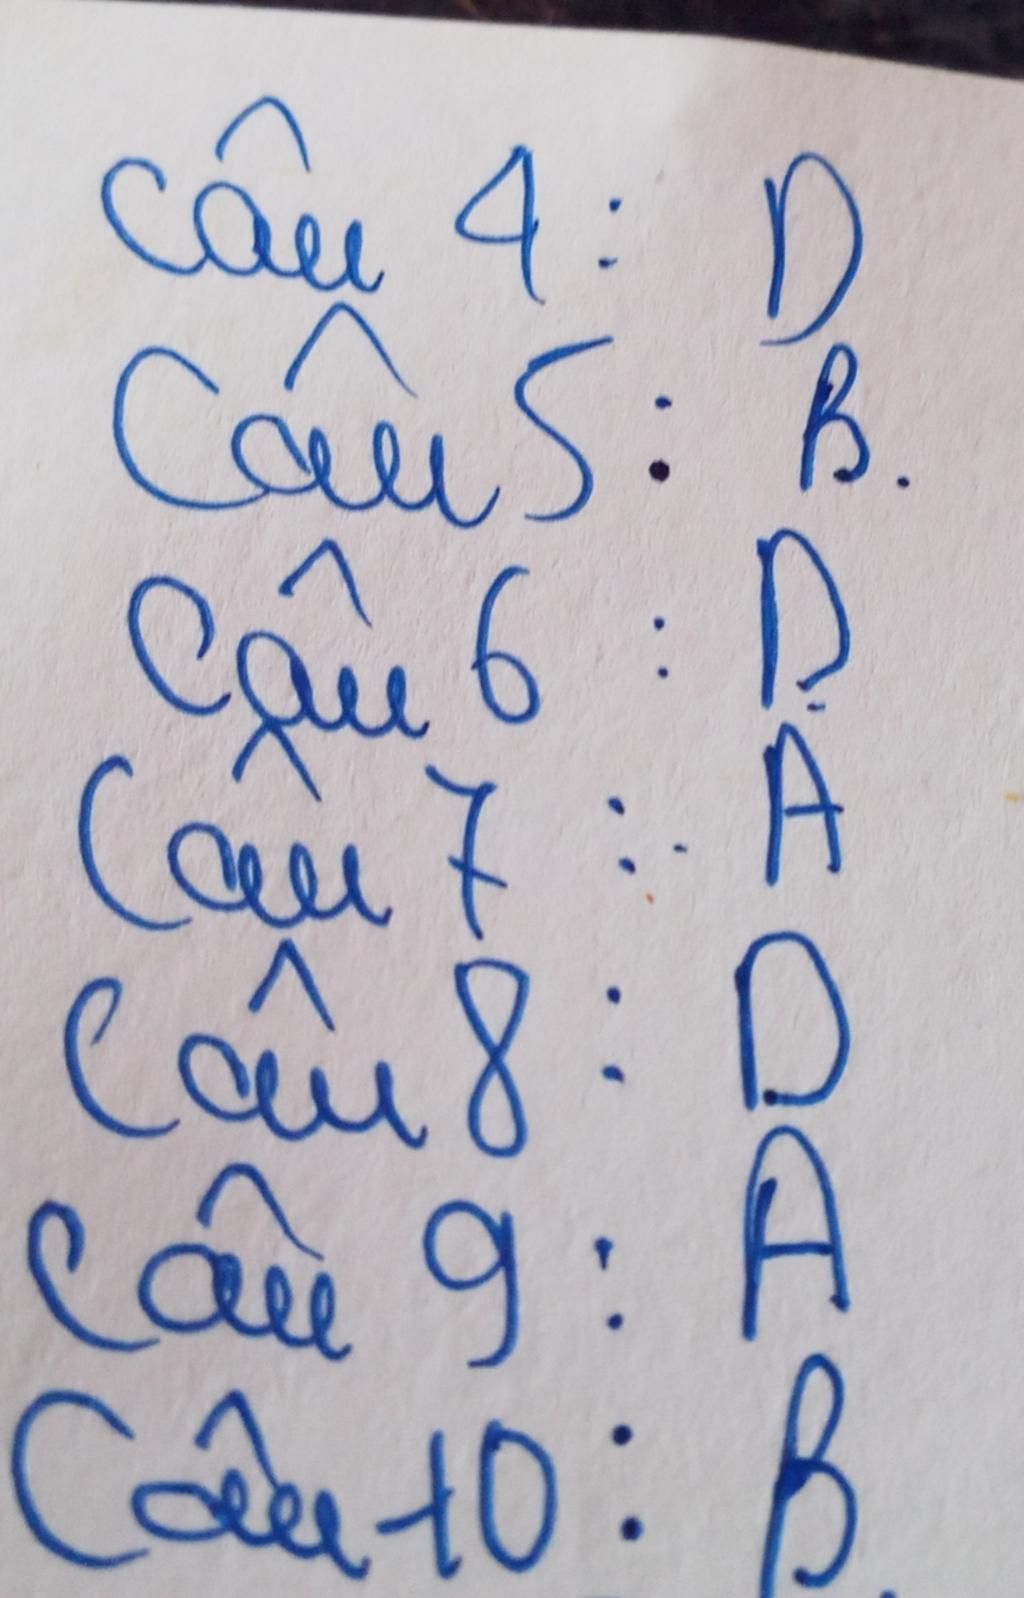 Câu 4 : D
Câu 5 : B.
Câu 6 : D
Câu 7 : A
Câu 8 : D
Câu 9 : A
Câu 10 : B.